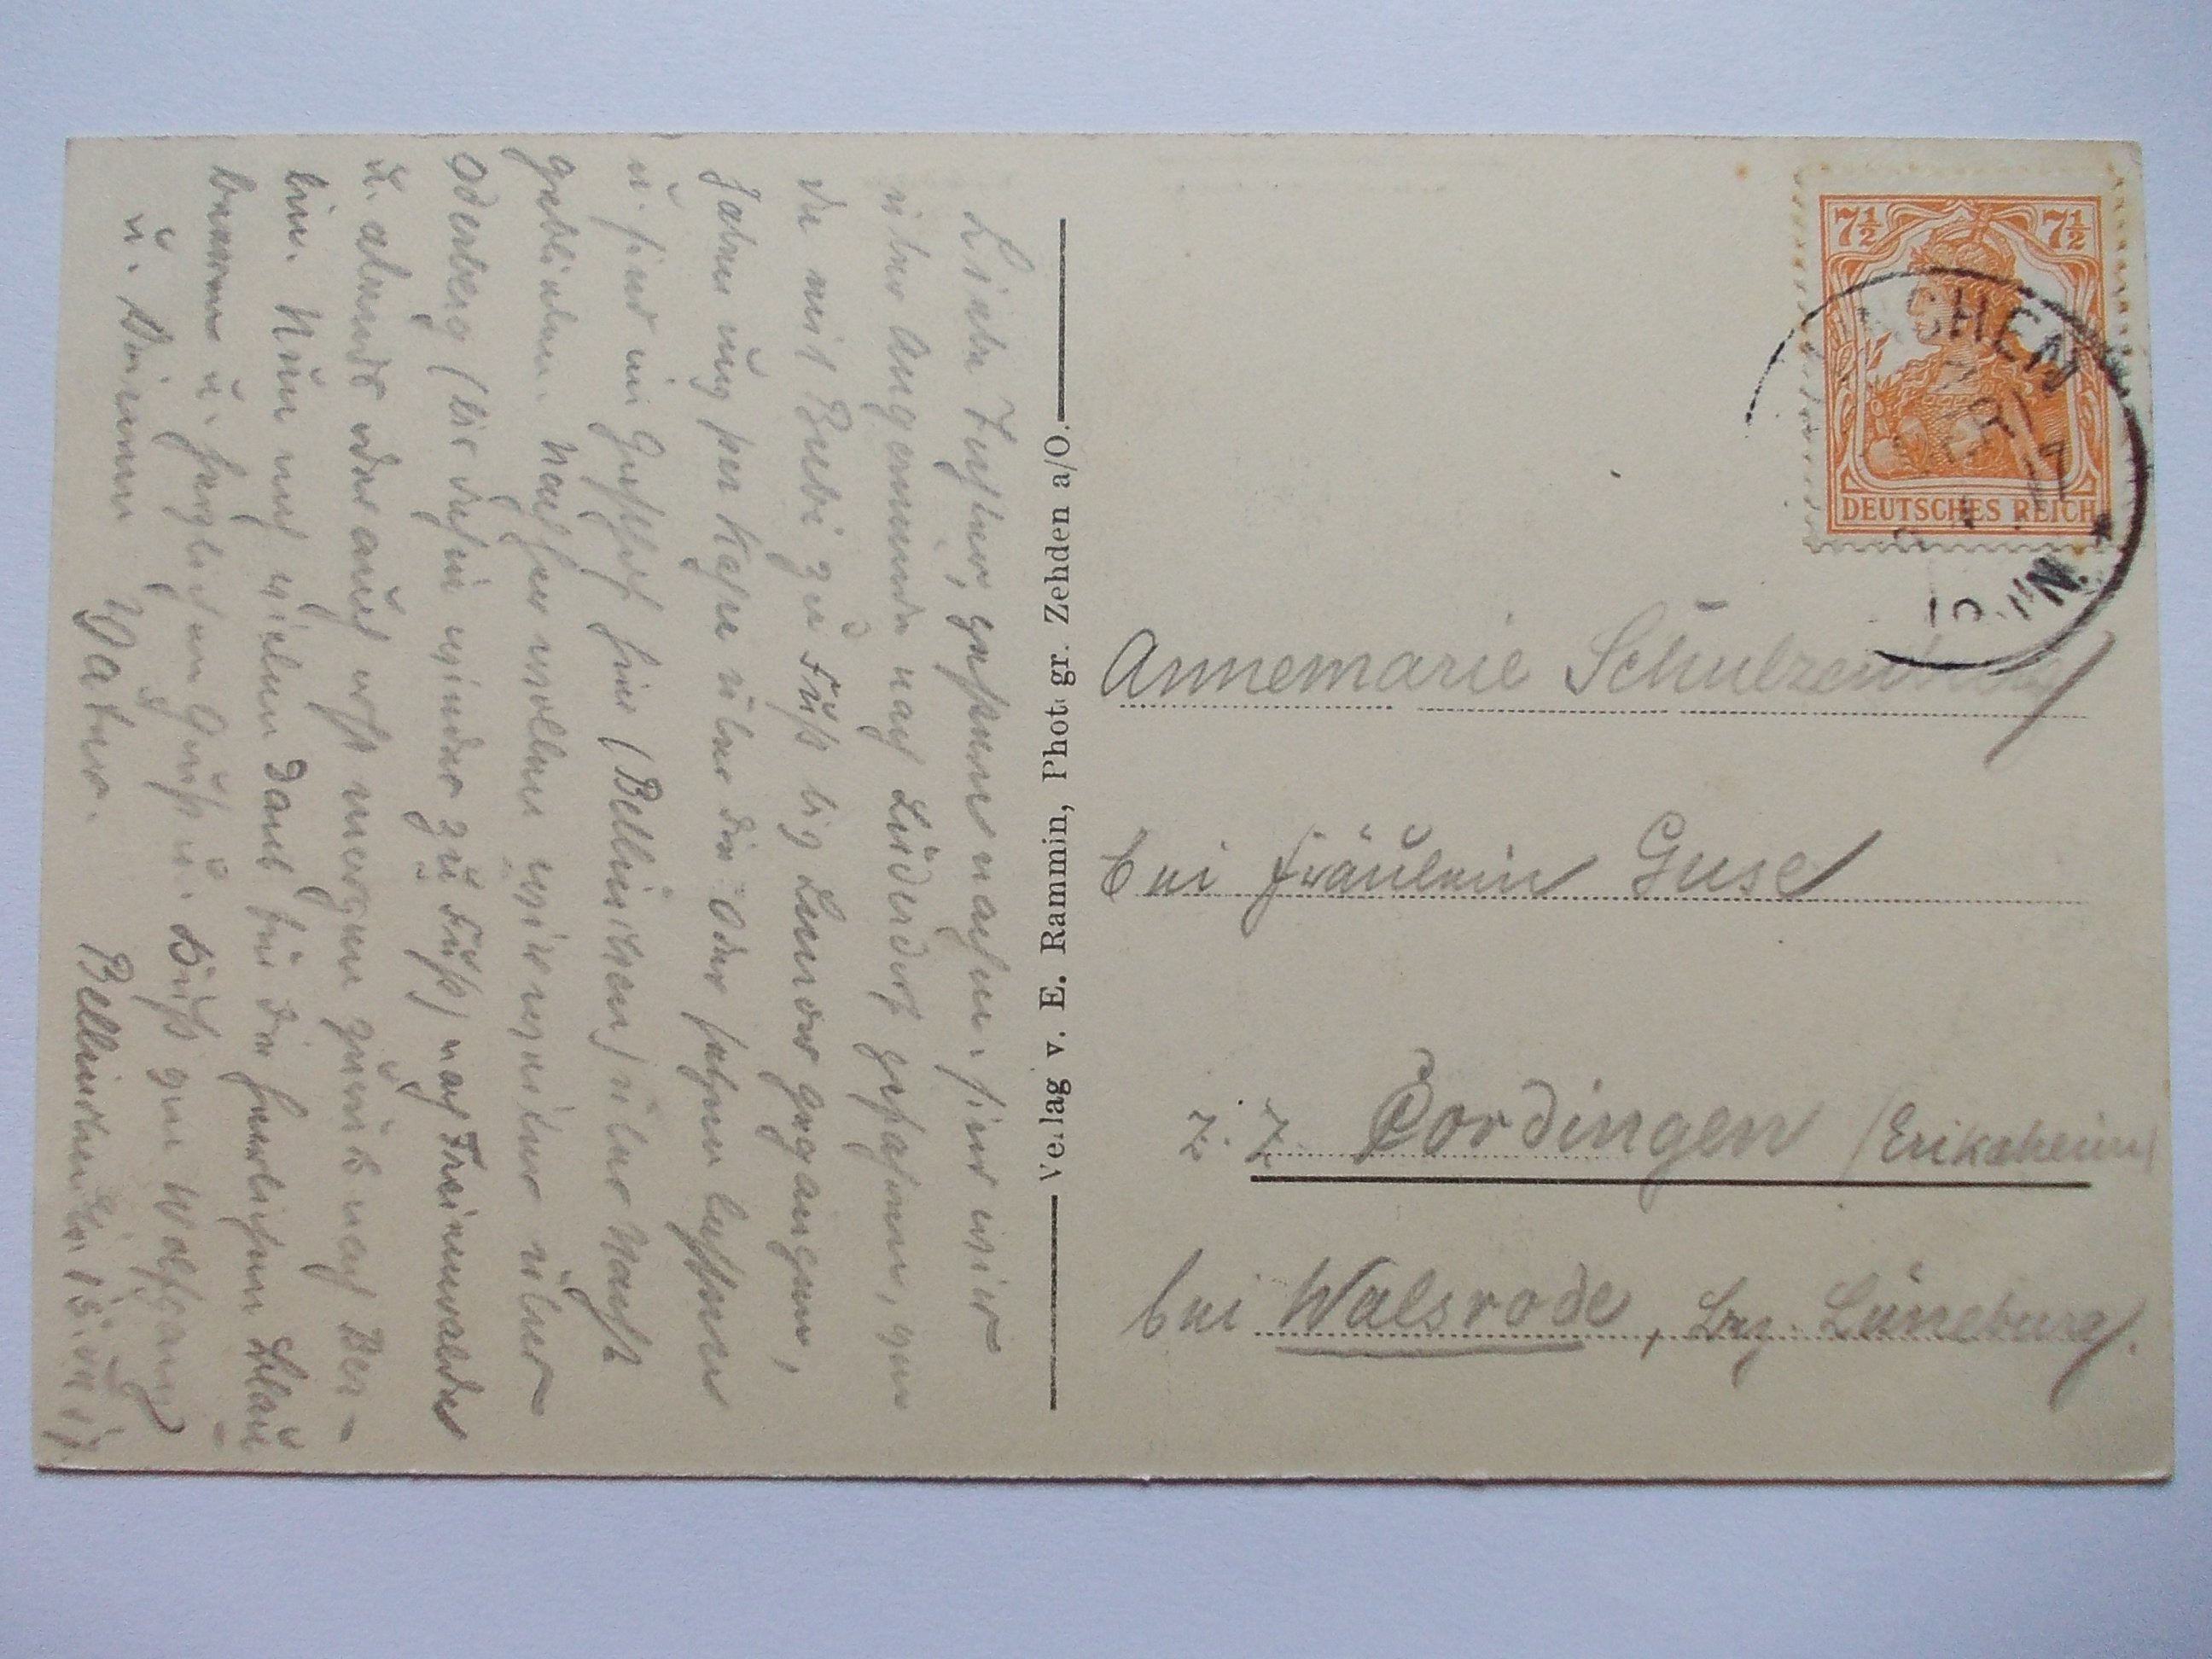 Liebe Tochter, gestern nachm. sind wir
über Angermünde nach Lüderdorf gefahren, von
da mit Bubi zu Fuß bis Lunow gegangen,
haben uns per Kahn über die Oder setzen lassen
u. sind im Gasthof hier (Bellinchen) über Nacht
geblieben. Nachher wollen wir weiter über
Oderberg (bis dahin wieder zu Fuß) nach Freienwalde
u. abends oder auch erst morgen zurück nach Ber-
lin. Nun noch vielen Dank für die herrlichen Blau-
beeren u. herzlichen Gruß u. Kuß von Wolfgang
u. Deinem Vater. Bellinchen
Verlag v. E. Rammin, Photogr. Zehden a/O.
7½ 7½
DEUTSCHES REICH
CHEN
Annemarie Schulzenburg
bei Fräulein Guse
z. Z. Cordingen (Erikaheim)
bei Walsrode, Bez. Lüneburg.